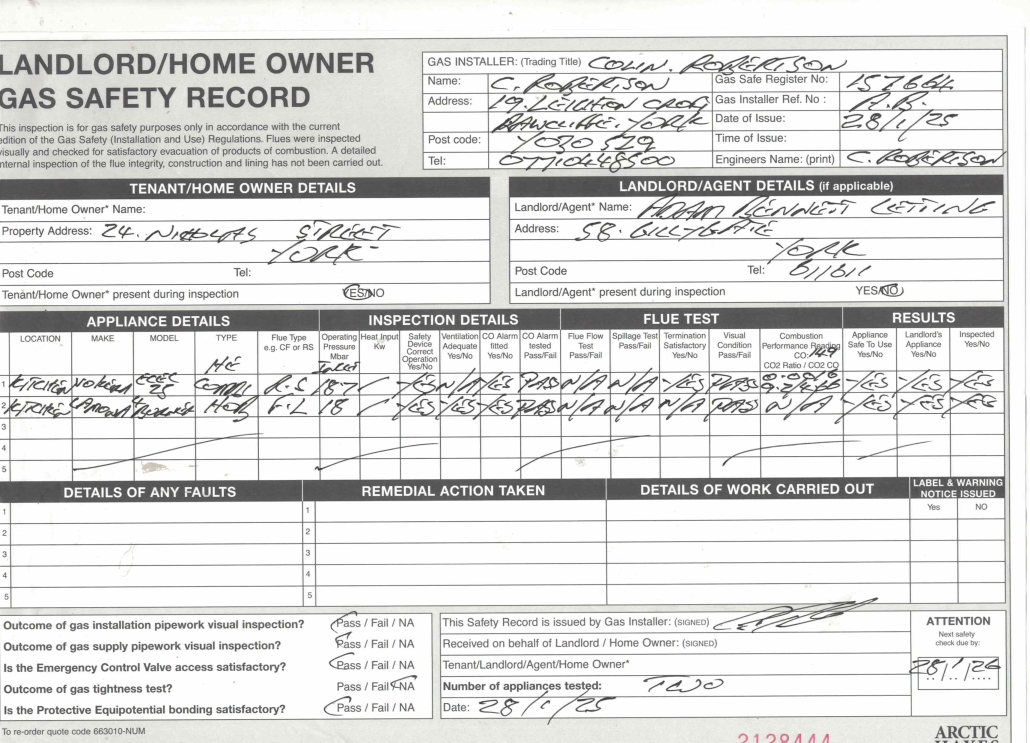 LANDLORD/HOME OWNER
GAS SAFETY RECORD
This inspection is for gas safety purposes only in accordance with the current
edition of the Gas Safety (Installation and Use) Regulations. Flues were inspected
visually and checked for satisfactory evacuation of products of combustion. A detailed
internal inspection of the flue integrity, construction and lining has not been carried out.
GAS INSTALLER: (Trading Title) COLIN. ROBERTSON
Name: C. ROBERTSON Gas Safe Register No: 157664
Address: 19. LEIGHTON CROFT Gas Installer Ref. No : A.B.
RAWCLIFFE. YORK Date of Issue: 28/1/25
Post code: YO30 5Z9 Time of Issue:
Tel: 07710448500 Engineers Name: (print) C. ROBERTSON
TENANT/HOME OWNER DETAILS
Tenant/Home Owner* Name:
Property Address: 24. NICHOLAS STREET
YORK
Post Code Tel:
Tenant/Home Owner* present during inspection YES/NO
LANDLORD/AGENT DETAILS (if applicable)
Landlord/Agent* Name: ADAM BENNETT LETTING
Address: 58. GILLYGATE
YORK
Post Code Tel: 611611
Landlord/Agent* present during inspection YES/NO
APPLIANCE DETAILS INSPECTION DETAILS FLUE TEST RESULTS
LOCATION MAKE MODEL TYPE HE Flue Type e.g. CF or RS Operating Pressure Mbar INLET Heat Input Kw Safety Device Correct Operation Yes/No Ventilation Adequate Yes/No CO Alarm fitted Yes/No CO Alarm tested Pass/Fail Flue Flow Test Pass/Fail Spillage Test Pass/Fail Termination Satisfactory Yes/No Visual Condition Pass/Fail Combustion Performance Reading CO: 149 CO2 Ratio / CO2 CO Appliance Safe To Use Yes/No Landlord's Appliance Yes/No Inspected Yes/No
1 KITCHEN COMBI R.S 18.7 YES N/A YES PASS N/A N/A YES PASS YES YES YES
2 KITCHEN HOB F.L 18 YES YES YES PASS N/A N/A N/A PASS N/A YES YES YES
3
4
5
DETAILS OF ANY FAULTS REMEDIAL ACTION TAKEN DETAILS OF WORK CARRIED OUT LABEL & WARNING NOTICE ISSUED
Yes NO
1 1
2 2
3 3
4 4
5 5
Outcome of gas installation pipework visual inspection? Pass / Fail / NA
Outcome of gas supply pipework visual inspection? Pass / Fail / NA
Is the Emergency Control Valve access satisfactory? Pass / Fail / NA
Outcome of gas tightness test? Pass / Fail / NA
Is the Protective Equipotential bonding satisfactory? Pass / Fail / NA
This Safety Record is issued by Gas Installer: (SIGNED)
Received on behalf of Landlord / Home Owner: (SIGNED)
Tenant/Landlord/Agent/Home Owner*
Number of appliances tested: TWO
Date: 28/1/25
ATTENTION
Next safety
check due by:
28/1/26
To re-order quote code 663010-NUM
2128444
ARCTIC
HAYES